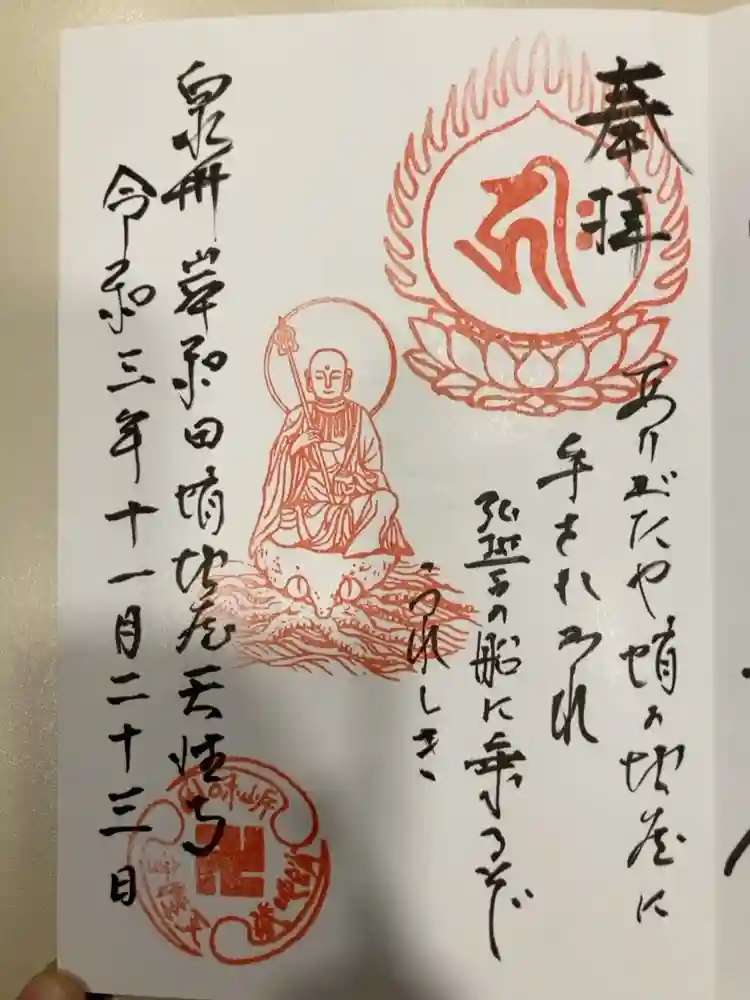 奉拝
ありがたや蛸の地蔵に
手をれられ
弘誓の船に乗るぞ
うれしき
泉州岸和田蛸地蔵天性寺
令和三年十一月二十三日